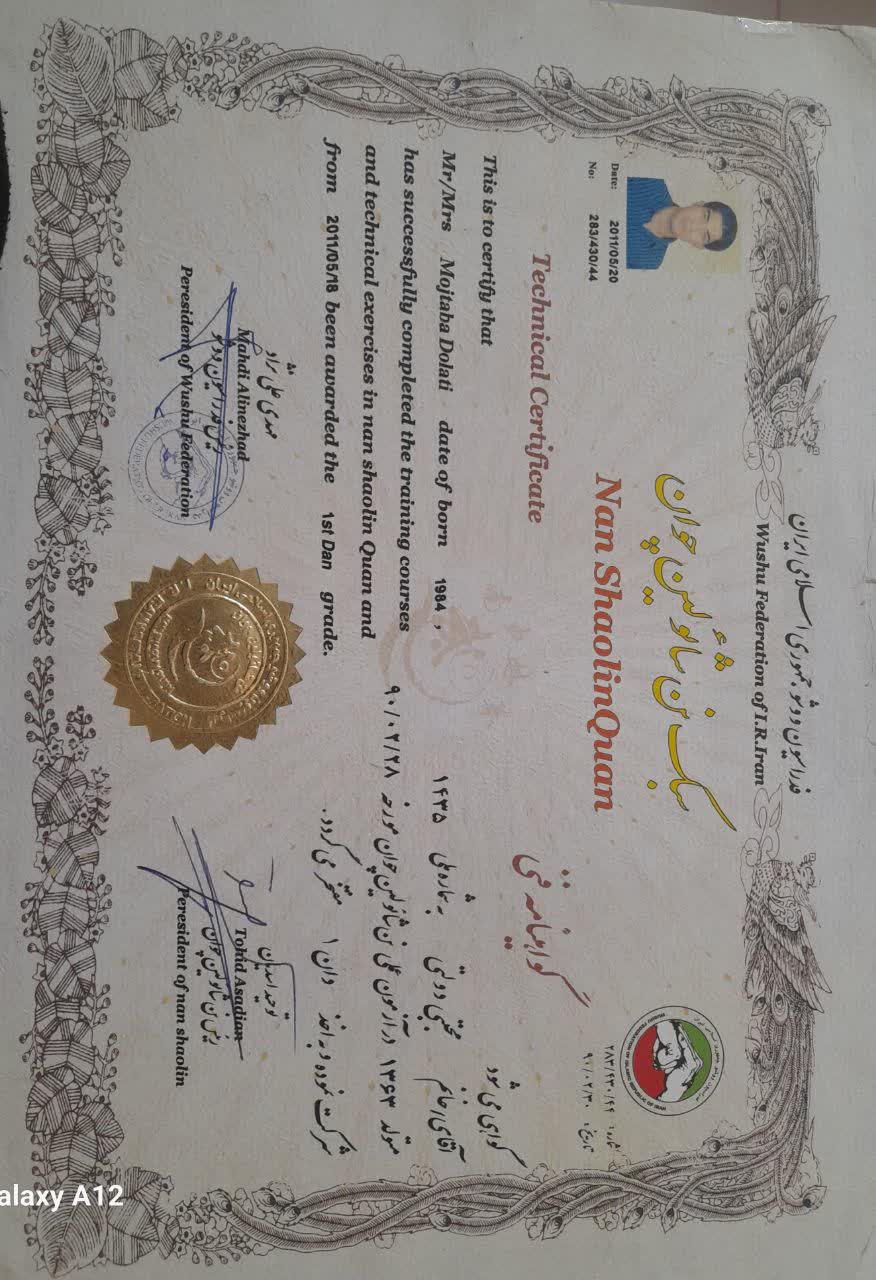 فدراسیون ووشو جمهوری اسلامی ایران
Wushu Federation of I.R.Iran
سبک نن شائولین چوان
Nan ShaolinQuan
Date: 2011/05/20
No: 283/430/44
شماره: ۲۸۳/۴۳۰/۴۴
تاریخ: ۹۰/۰۲/۳۰
Technical Certificate
This is to certify that
Mr/Mrs Mojtaba Dolati date of born 1984 ,
has successfully completed the training courses
and technical exercises in nan shaolin Quan and
from 2011/05/18 been awarded the 1st Dan grade.
گواهینامه فنی
گواهی می شود
آقای/خانم مجتبی دولتی به شماره ملی ۱۴۳۵
متولد ۱۳۶۳ در آزمون فنی نن شائولین چوان مورخه ۹۰/۰۲/۲۸
شرکت نموده و به اخذ دان ۱ مفتخر می گردد.
مهدی علی نژاد
Mahdi Alinezhad
رئیس فدراسیون ووشو
Peresident of Wushu Federation
توحید اسدیان
Tohid Asadian
رئیس نن شائولین چوان
Peresident of nan shaolin
alaxy A12